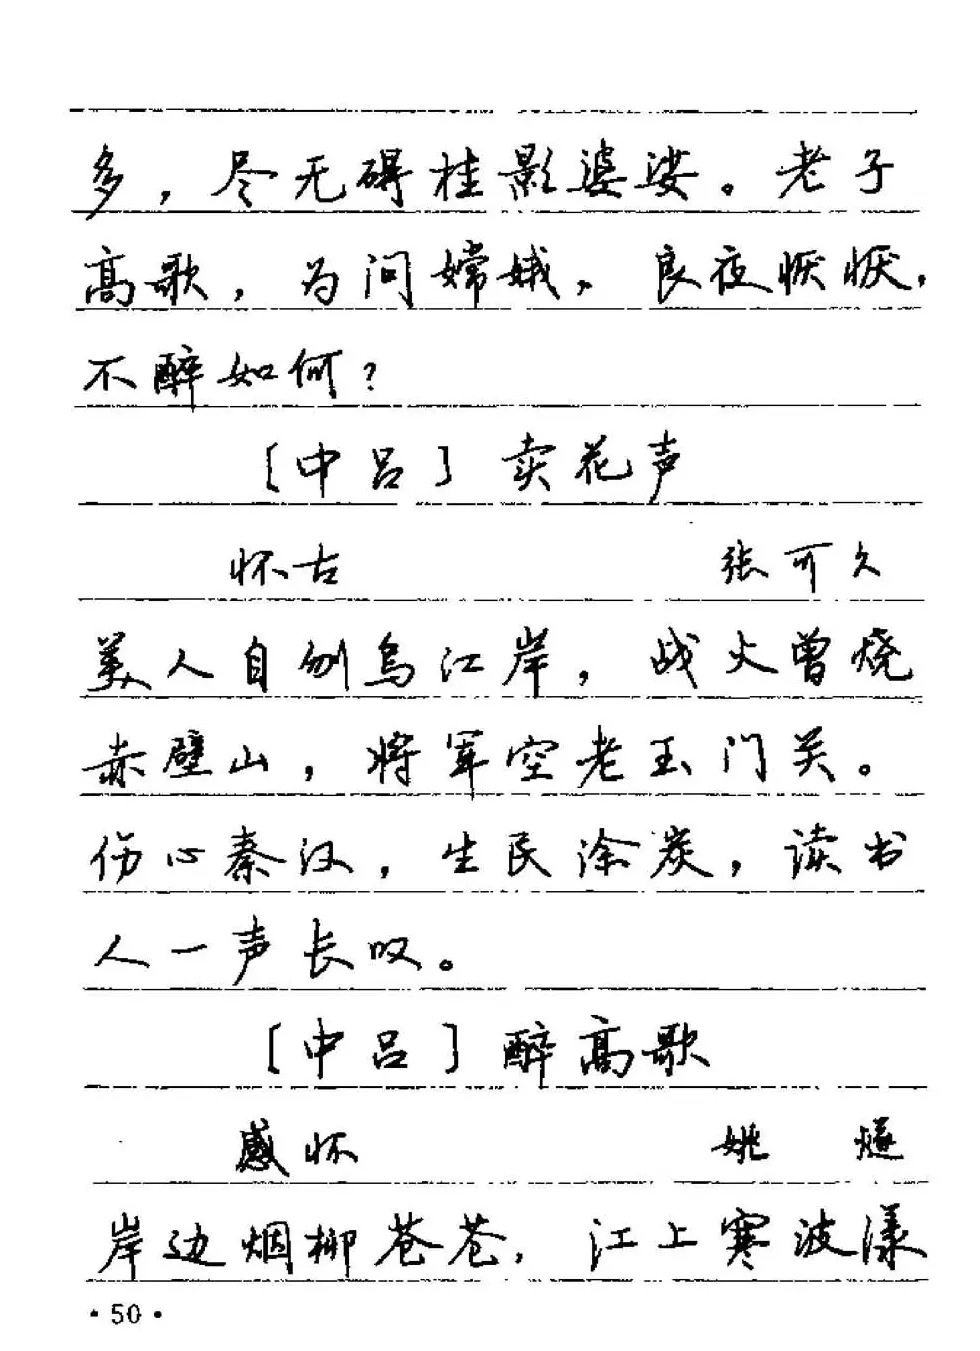 多，尽无碍桂影婆娑。老子
高歌，为问嫦娥，良夜恹恹，
不醉如何？
［中吕］卖花声
怀古 张可久
美人自刎乌江岸，战火曾烧
赤壁山，将军空老玉门关。
伤心秦汉，生民涂炭，读书
人一声长叹。
［中吕］醉高歌
感怀 姚 燧
岸边烟柳苍苍，江上寒波漾
·50·